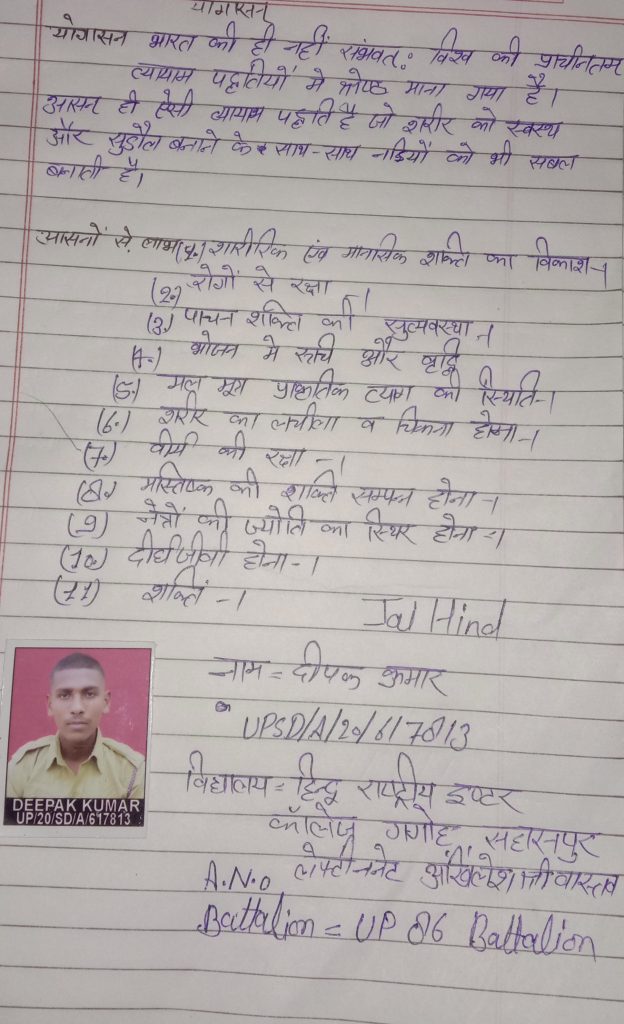 योगासन
योगासन भारत की ही नहीं संभवत: विश्व की प्राचीनतम
व्यायाम पद्धतियों मे श्रेष्ठ माना गया है।
आसन ही ऐसी व्यायाम पद्धति है जो शरीर को स्वस्थ
और सुडौल बनाने के साथ-साथ नाडियों को भी सबल
बनाती है।
आसनों से लाभ (1.) शारीरिक एंव मानसिक शक्ति का विकाश-।
(2.) रोगों से रक्षा -।
(3.) पाचन शक्ति की सुव्यवस्था -।
(4.) भोजन मे रूची और वृद्धि
(5.) मल मूत्र प्राकृतिक त्याग की स्थिति-।
(6.) शरीर का लचीला व चिकना होना-।
(7.) वीर्य की रक्षा -।
(8.) मस्तिष्क की शक्ति सम्पन्न होना-।
(9) नेत्रों की ज्योति का स्थिर होना -।
(10.) दीर्घजीवी होना-।
(11) शक्ति -।
Jai Hind
नाम = दीपक कुमार
UPSD/A/20/617813
DEEPAK KUMAR
UP/20/SD/A/617813
विद्यालय = हिन्दू राष्ट्रीय इण्टर
कॉलेज गंगोह, सहारनपुर
A.N.O लेफ्टीनेनेट अखिलेश श्रीवास्तव
Battalion = UP 86 Battalion